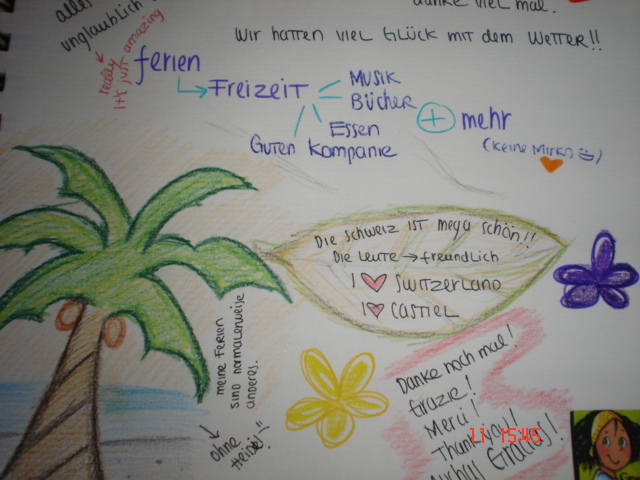 danke viel mal.
unglaublich!
really
it's just amazing
Wir hatten viel Glück mit dem Wetter!!
ferien
Freizeit
Musik
Bücher
Essen
Guten Kompanie
+ mehr
(keine Mirkn ü)
Die Schweiz ist mega schön!!
Die Leute → freundlich
I ♥ Switzerland
I ♥ Castiel
meine Ferien
sind normalerweise
anderes.
ohne
Danke noch mal!
Grazie!
Merci!
Muchas Gracias!
15:45